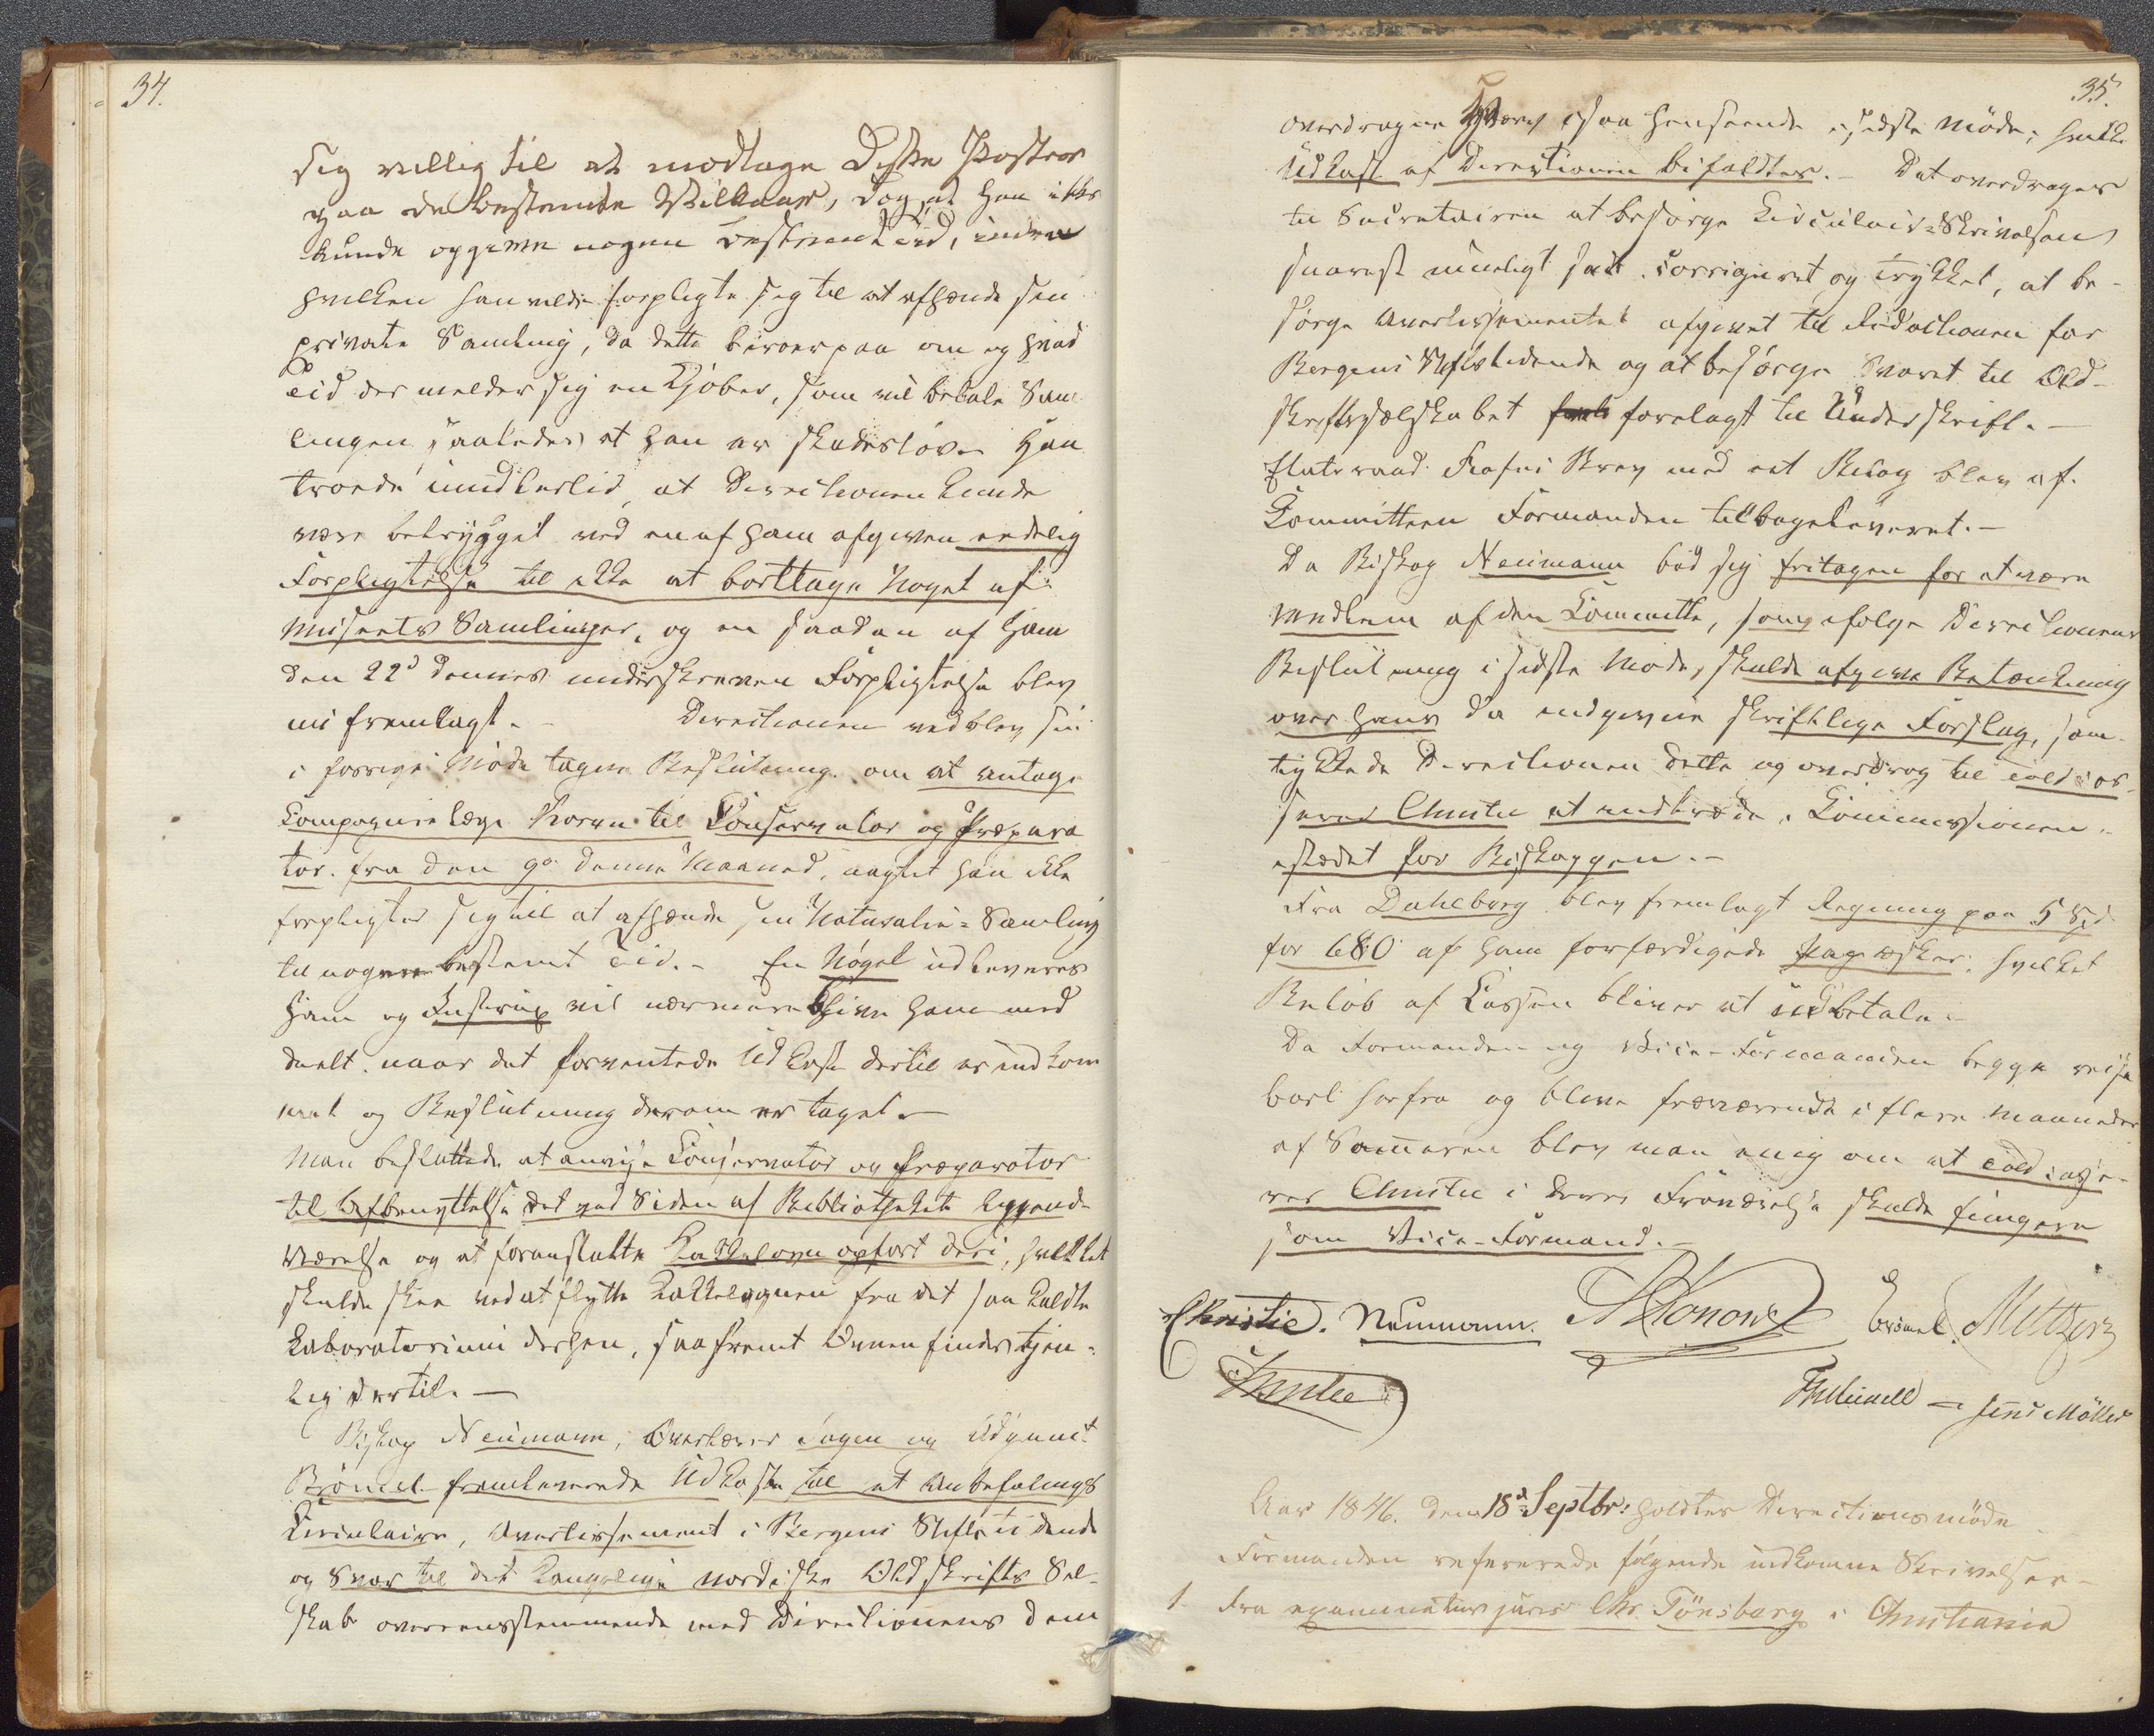 34.
sig villig til at modtage disse Poster
paa de bestemte Vilkaar, dog at han ikke
kunde opgive nogen bestemt Tid, inden
hvilken han vilde forpligte sig til at afhænde sin
private Samling, da dette beroer paa om og hvad
Tid der melder sig en Kjöber, som vil betale Sam
lingen saaledes at han er skadeslös. Han
troede imidlertid, at Directionen kunde
være betrygget ved en af ham afgiven endelig
Forpligtelse til ikke at borttage Noget af
Museets Samlinger, og en saadan af ham
den 22d dennes underskreven Forpligtelse blev
nu fremlagt. Directionen vedblev sin
i forrige Möde tagne Beslutning om at antage
Compagnielæge Koren til Conservator og Præpara
tor fra den 9de denne Maaned, uagtet han ikke
forpligter sig til at afhænde sin Naturalie-Samling
til nogen bestemt Tid. - En Nögel udleveres
ham og Instrux vil nærmere blive ham med
deelt naar det forventede Udkast dertil er indkom
met og Beslutning derom er taget. -
Man besluttede at anvise Conservator og Præparator
til Afbenyttelse det ved Siden af Bibliotheket liggende
Værelse og at foranstalte Kakkelovn opfört deri, hvilket
skulde skee ved at flytte Kakkelovnen fra det saa kaldte
Laboratorium derhen, saafremt Ovnen findes tjen-
lig dertil. -
Biskop Neumann, Overlærer Sagen og Adjunct
Brömel fremleverede Udkaste til et Anbefalings
Circulaire, Avertissement i Bergens Stiftstidende
og Svar til det kongelige nordiske Oldskrifts Sel-
skab overensstemmende med Directionens dem
35.
overdragne Hverv i saa Henseende i sidste Möde; hvilke
Udkast af Directionen bifaldtes. - Det overdrages
til Secretairen at besörge Circulair-Skrivelsen
snarest mueligt sat, corrigeret og trykket, at be-
sörge Avertissementet afgivet til Redactionen for
Bergens Stiftstidende og at besörge Svaret til Old-
skriftselskabet forelagt til Underskrift. -
Etatsraad Rafns Brev med et Bilag blev af
Committeen Formanden tilbageleveret. -
Da Biskop Neumann bad sig fritagen for at være
Medlem af den Committee, som ifölge Directionens
Beslutning i sidste Möde, skulde afgive Betænkning
over hans da indgivne skriftlige Forslag, sam-
tykkede Directionen dette og overdrog til Toldcas-
serer Christie at indtræde i Commissionen
istedet for Biskoppen. -
Fra Dahlberg blev fremlagt Regning paa 5 Spd
for 680 af ham forfærdigede Papæsker, hvilket
Belöb af Cassen bliver at udbetale. -
Da Formanden og Vice-Formanden begge reise
bort herfra og blive fraværende i flere Maaneder
af Sommeren blev man enig om at Toldcasse-
rer Christie i deres Fraværelse skulde fungere
som Vice-Formand. -
Christie. Neumann. Konow Brömel. Meltzer
Christie Thulinell Jens Möller
Aar 1846. den 18d Septbr: holdtes Directionsmöde
Formanden refererede fölgende indkomne Skrivelser. -
1. Fra examinatus juris Chr. Tönsberg i Christiania